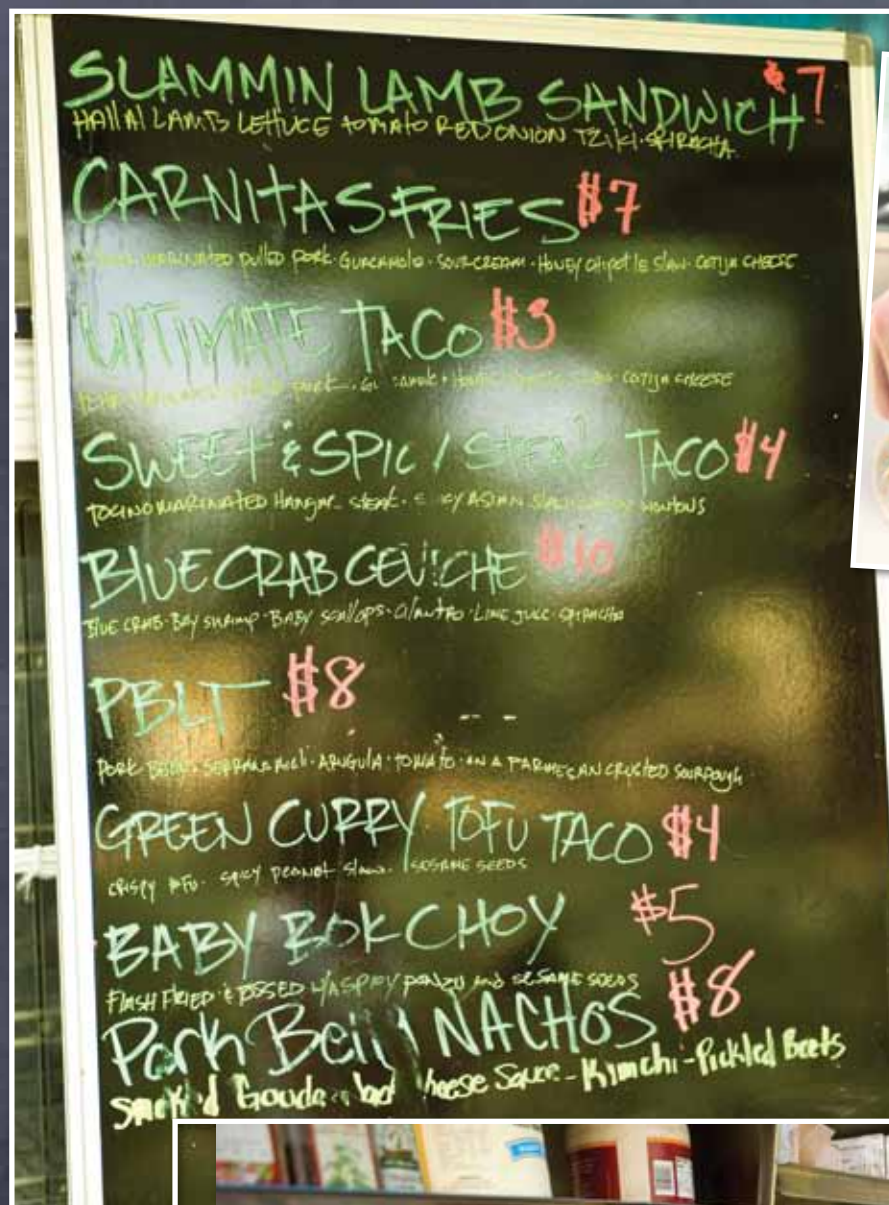 SLAMMIN LAMB SANDWICH $7
HALLAL LAMB LETTUCE TOMATO RED ONION TZIKI · SRIRACHA
CARNITAS FRIES $7
MARINATED PULLED PORK · GUACAMOLE · SOUR CREAM · HONEY CHIPOTLE SLAW · COTIJA CHEESE
ULTIMATE TACO $3
PORK · COTIJA CHEESE
SWEET & SPICY STEAK TACO $4
TOCINO MARINATED HANGAR STEAK · ASIAN SLAW WONTONS
BLUE CRAB CEVICHE $10
BLUE CRAB · BAY SHRIMP · BABY SCALLOPS · CILANTRO · LIME JUICE · SRIRACHA
PBLT $8
PORK BELLY · SERRANO AIOLI · ARUGULA · TOMATO · ON A PARMESAN CRUSTED SOURDOUGH
GREEN CURRY TOFU TACO $4
CRISPY TOFU · SPICY PEANUT SLAW · SESAME SEEDS
BABY BOK CHOY $5
FLASH FRIED & TOSSED W/ASPICY PONZU AND SESAME SEEDS
Pork Belly NACHOS $8
Smok'd Gouda cheese Sauce - Kimchi - Pickled Beets